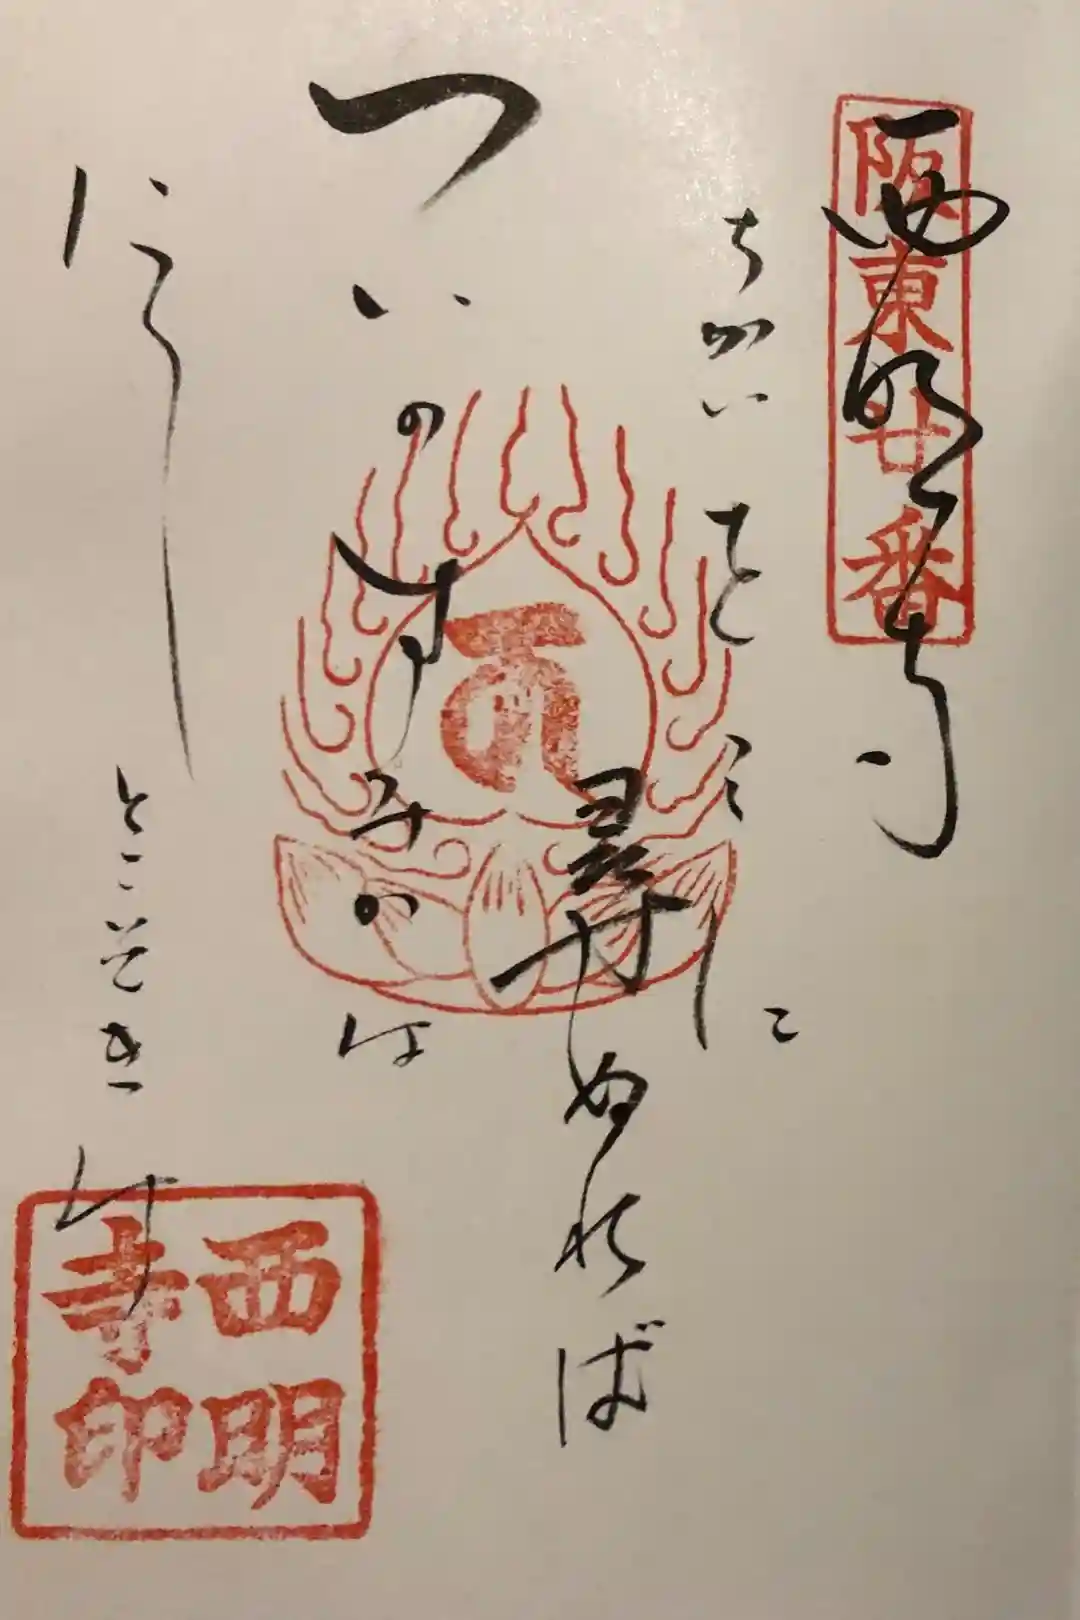 阪東廿番
西明寺
ちかいをここに
尋ぬれば
ついのすみかは
にし
とこそきけ
西明
寺印